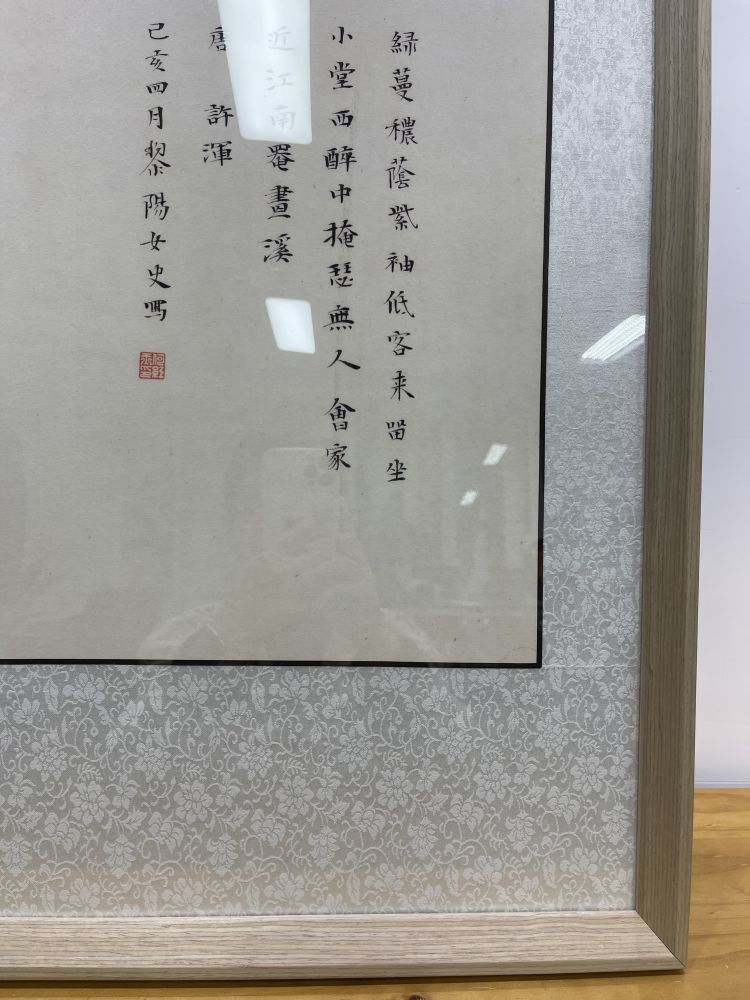 緑蔓穠蔭紫袖低客来留坐
小堂西醉中掩瑟無人會家
近江南罨畫溪
唐 許渾
己亥四月黎陽女史寫